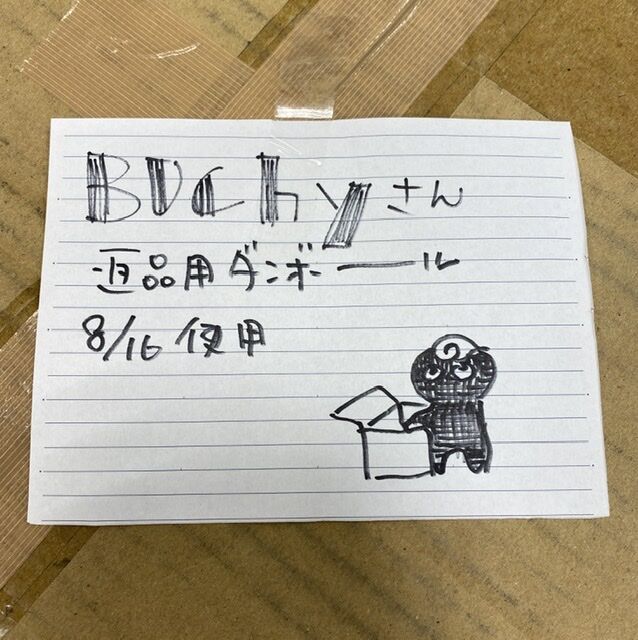 BUChyさん
返品用ダンボール
8/16 使用